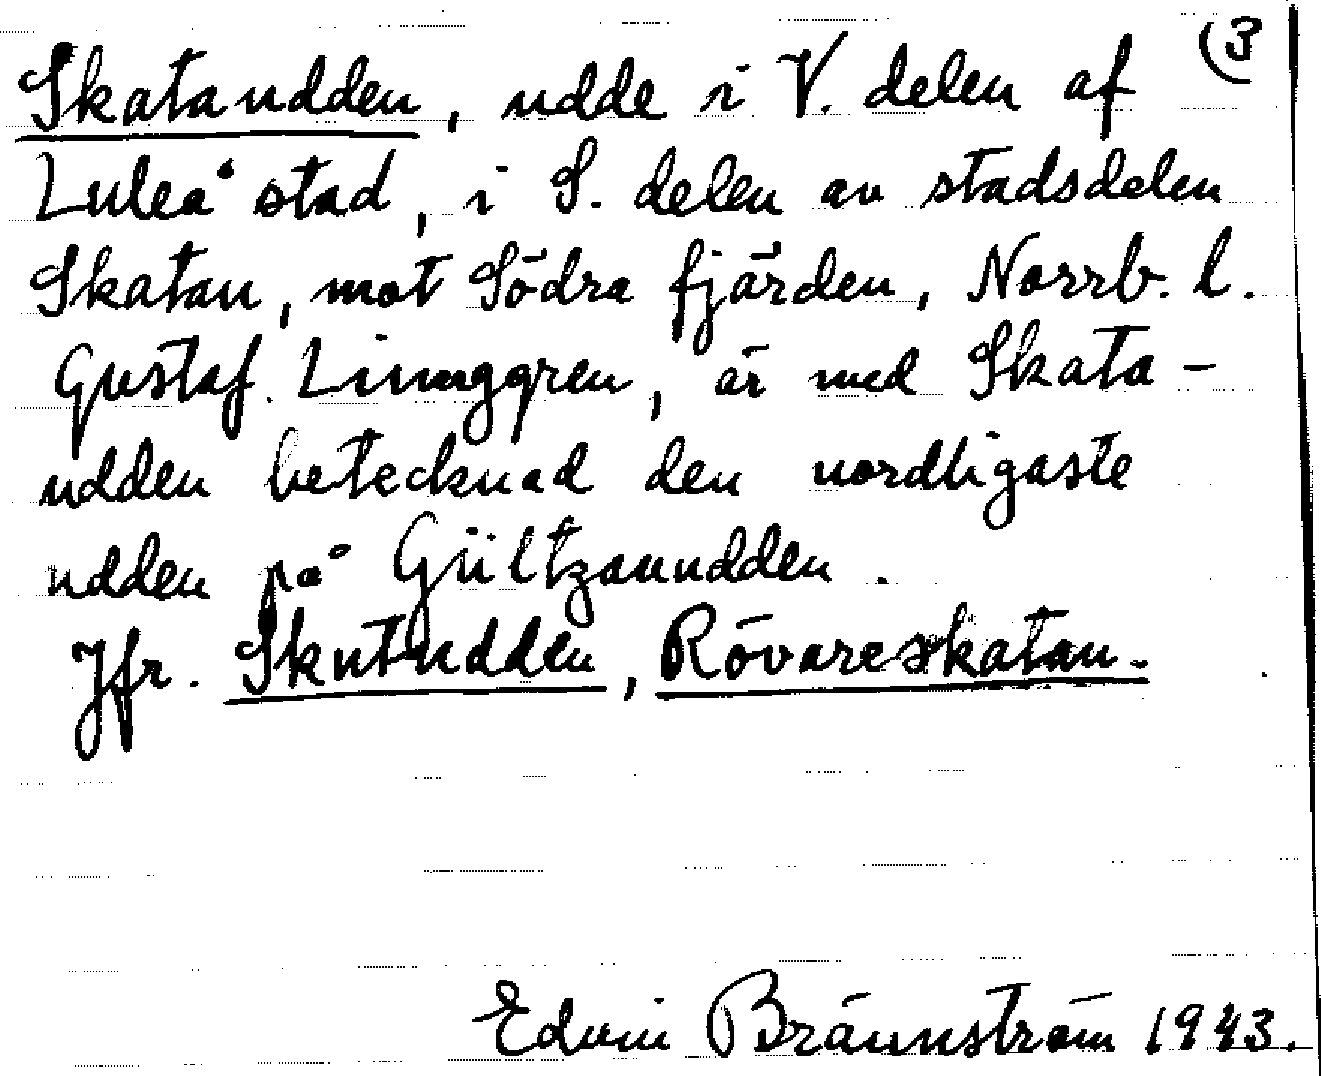 3
Skataudden, udde i V. delen af
Luleå stad, i S. delen av stadsdelen
Skatan, mot Södra fjärden, Norrb. l.
Gustaf. Linnggren, är med Skata-
udden betecknad den nordligaste
udden på Gültzauudden.
Jfr. Skutudden, Rövareskatan.
Edvin Brännström 1943.